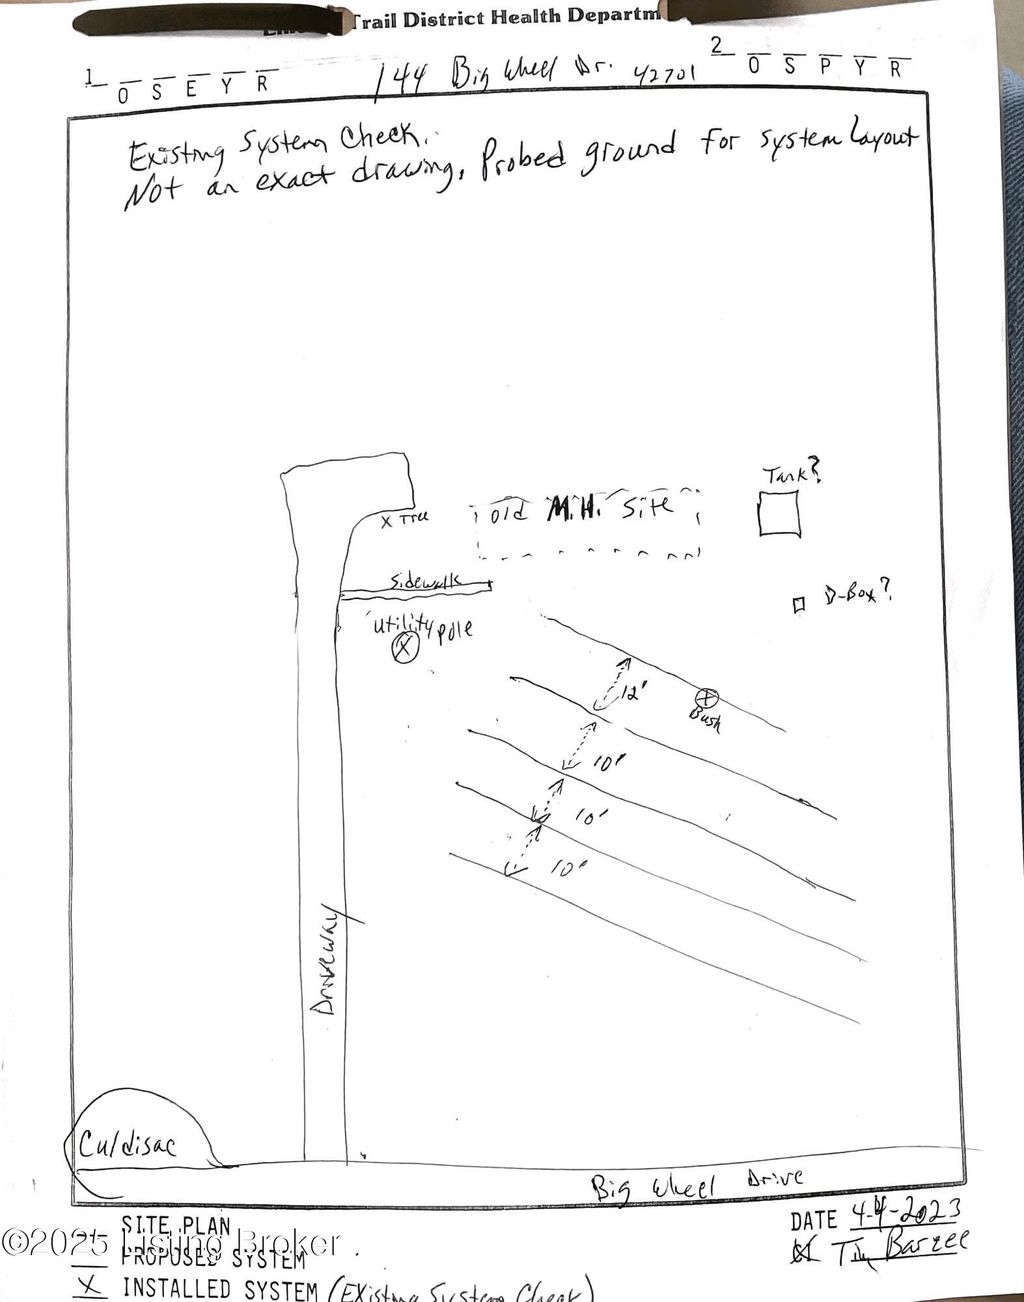 Trail District Health Departm
1 O S E Y R
144 Big Wheel Dr. 42701
2 O S P Y R
Existing System Check.
Not an exact drawing, Probed ground for system Layout
Tank?
Old M.H. Site
X Tree
Sidewalk
D-Box?
utility pole
X
12'
X
Bush
10'
10'
10'
Driveway
Culdisac
Big Wheel Drive
SITE PLAN
DATE 4-4-2023
PROPOSED SYSTEM
Barzee
X INSTALLED SYSTEM (Existing System Check)
©2025 Listing Broker